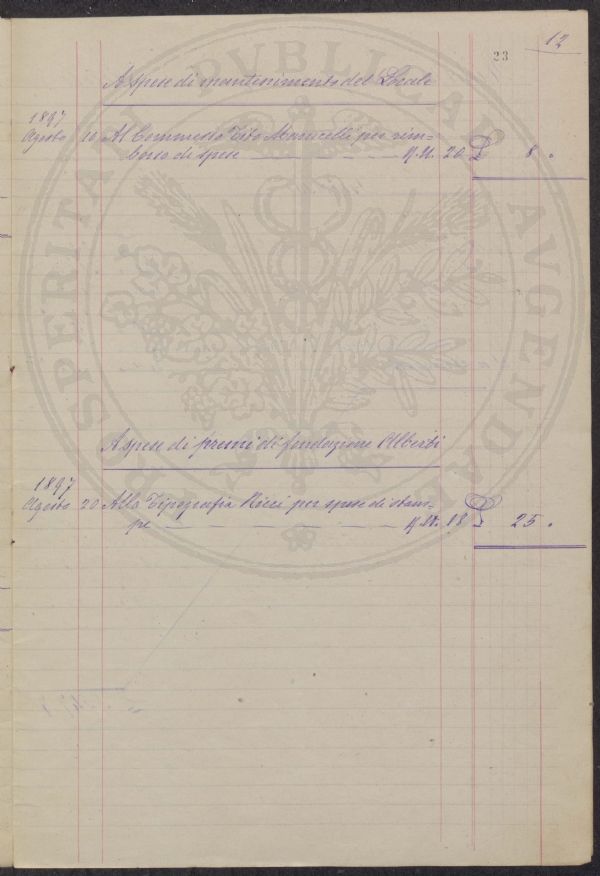 12
23
A spese di mantenimento del Locale
1897
Agosto 10 Al Commesso Tito Marucelli per rim-
borso di spese N. 20 £ 8 "
A spese di premi di fondazione Alberti
1897
Agosto 20 Alla Tipografia Ricci per spese di stam-
pe N. 18 £ 25 "
PROSPERITATI PVBLICAE AVGENDAE